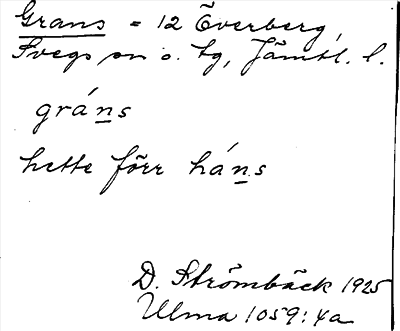 Grans = 12 Överberg,
Svegs sn o. tg, Jämtl. l.
gráns
hette förr háns
D. Strömbäck 1925
Ulma 1059:4a